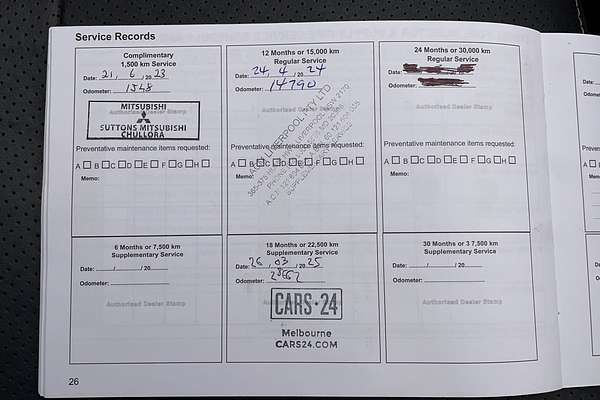 Service Records
Complimentary
1,500 km Service
Date: 21, 6 / 20 23
Odometer: 1548
Authorised Dealer Stamp
MITSUBISHI
SUTTONS MITSUBISHI
CHULLORA
Preventative maintenance items requested:
A B C D E F G H
Memo:
12 Months or 15,000 km
Regular Service
Date: 24, 4 / 20 24
Odometer: 14790
Authorised Dealer Stamp
LIVERPOOL PTY LTD
Preventative maintenance items requested:
A B C D E F G H
Memo:
24 Months or 30,000 km
Regular Service
Date:
Odometer:
Authorised Dealer Stamp
Preventative maintenance items requested:
A B C D E F G H
Memo:
6 Months or 7,500 km
Supplementary Service
Date: / / 20
Odometer:
Authorised Dealer Stamp
18 Months or 22,500 km
Supplementary Service
Date: 26, 03 / 20 25
Odometer:
CARS·24
Melbourne
CARS24.COM
30 Months or 3 7,500 km
Supplementary Service
Date: / / 20
Odometer:
Authorised Dealer Stamp
26